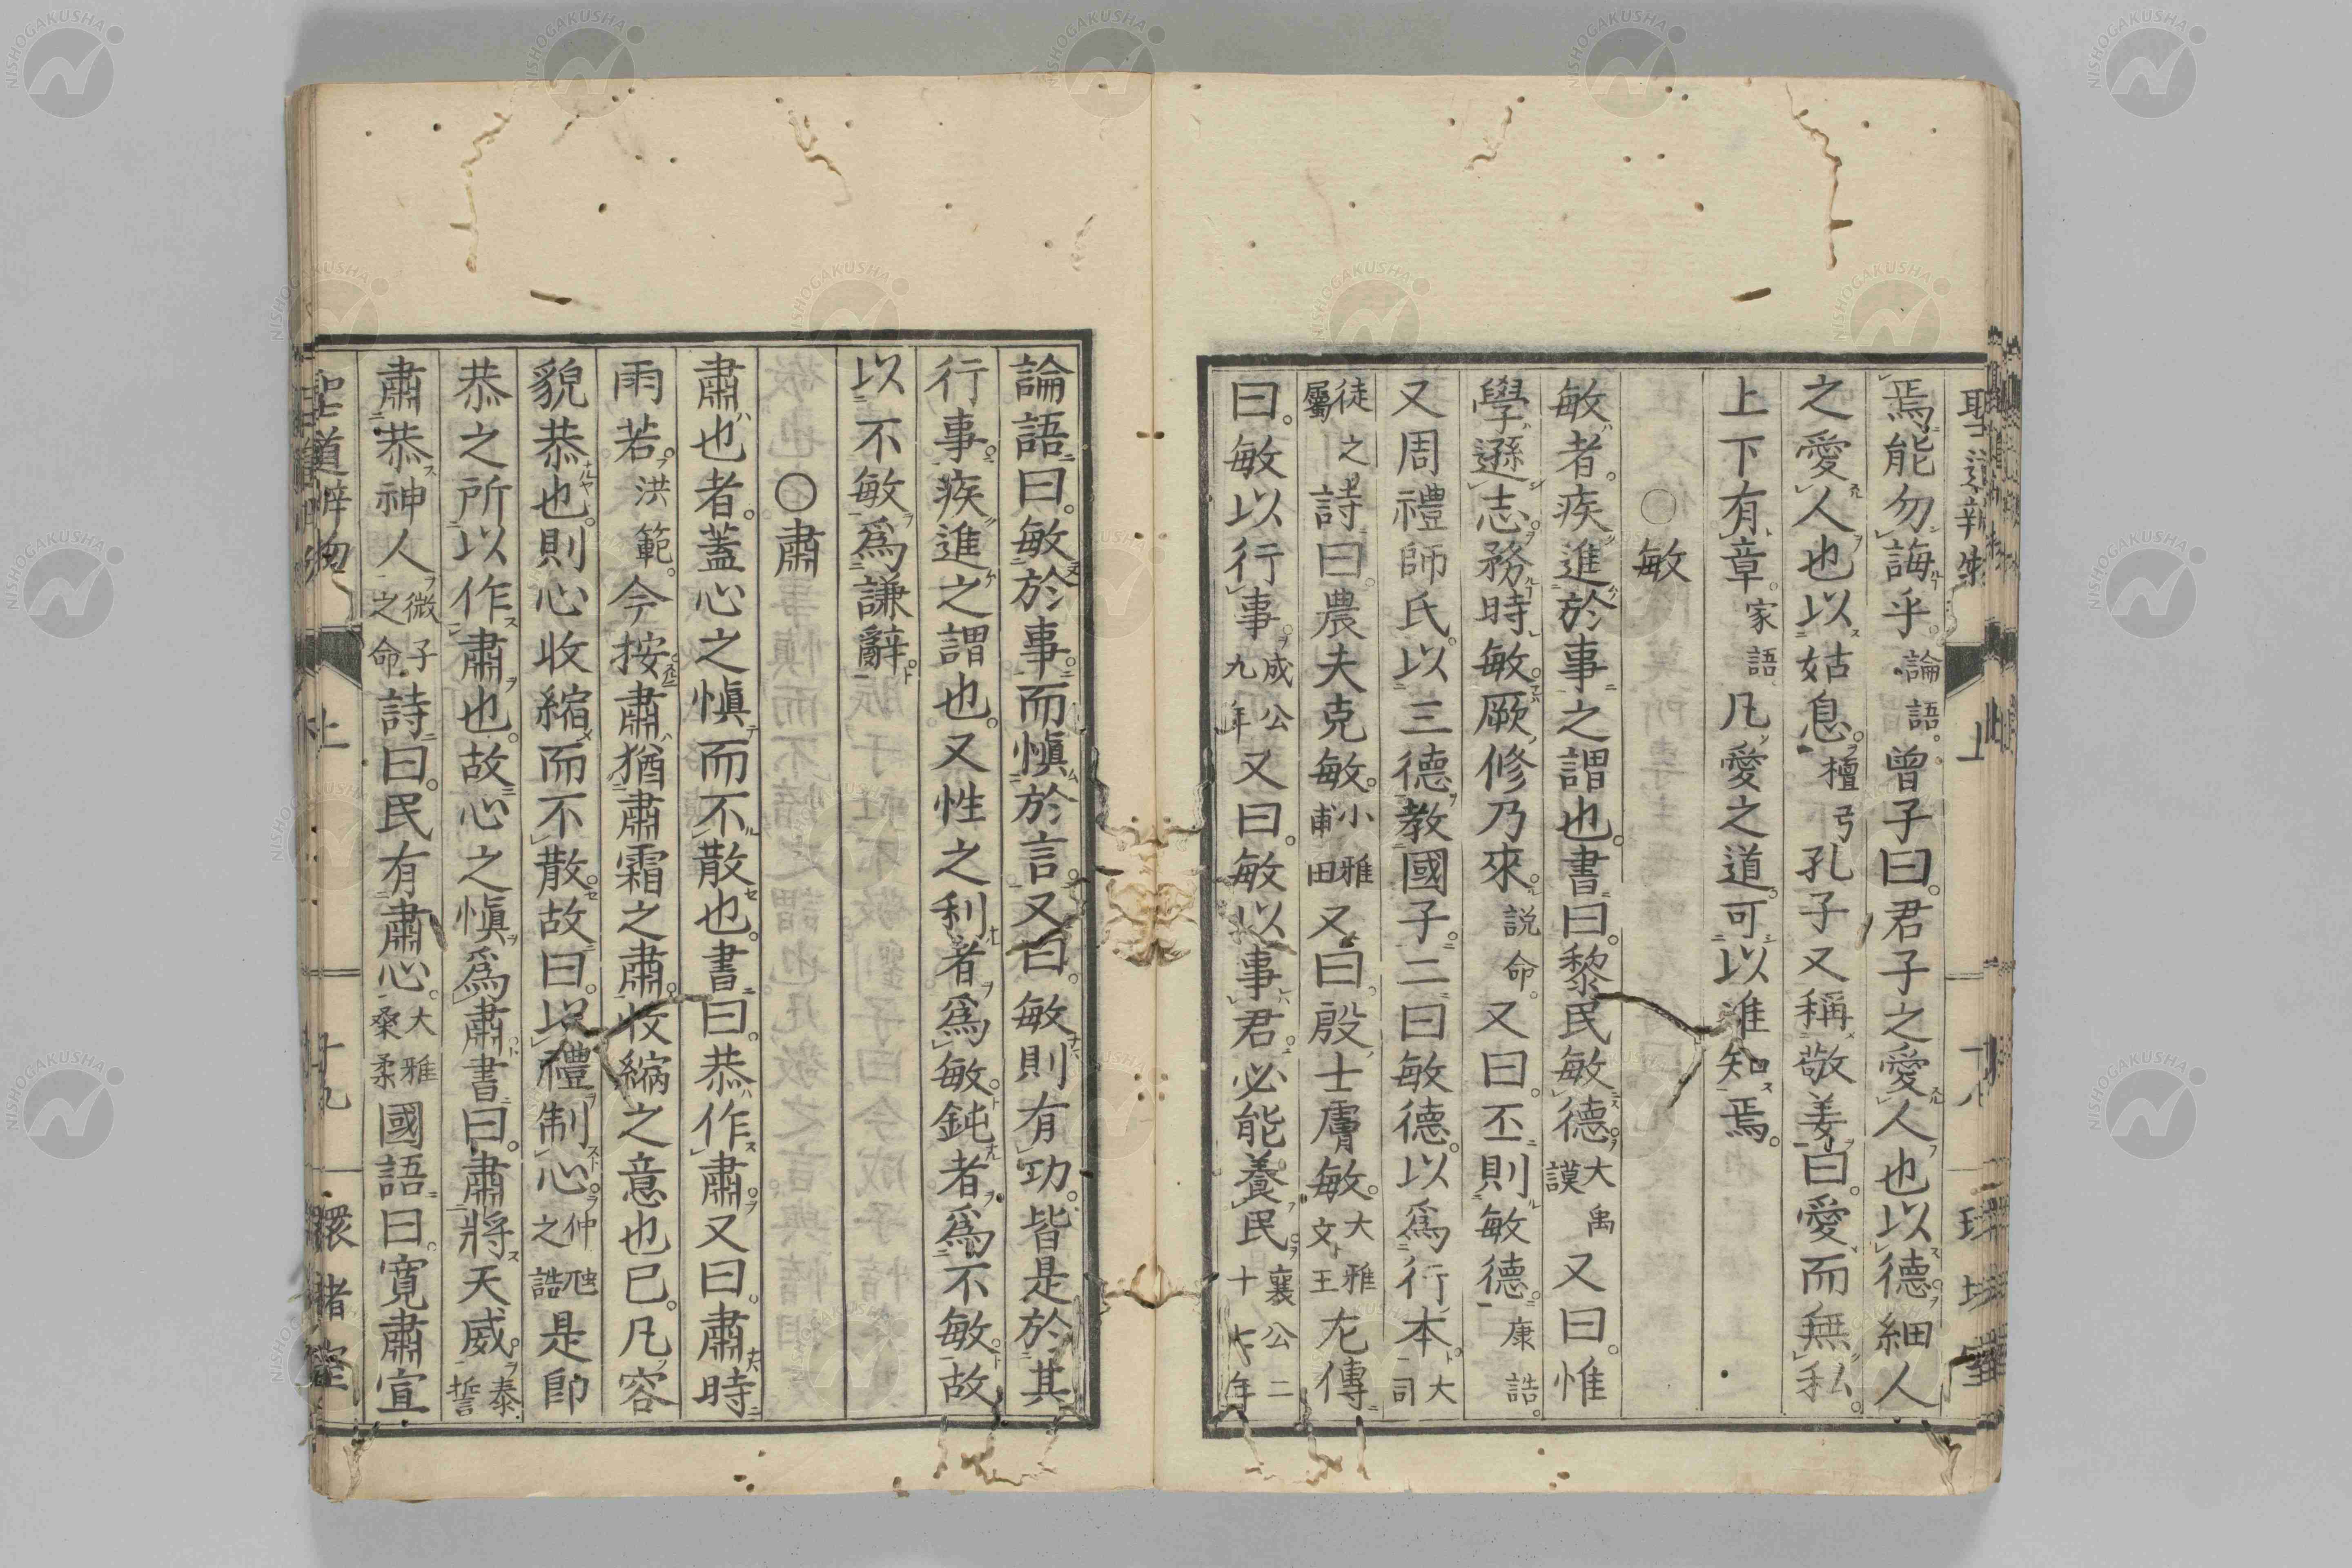 焉能勿誨乎。論語。曾子曰。君子之愛人也以德。細人
之愛人也以姑息。檀弓孔子又稱敬姜曰。愛而無私。
上下有章。家語凡愛之道。可以准知焉。
○敏
敏者。疾進於事之謂也。書曰。黎民敏德。大禹謨又曰。惟
學遜志。務時敏。厥修乃來。説命。又曰。丕則敏德。康誥。
又周禮師氏。以三德教國子。二曰敏德。以爲行本。大司
徒之屬詩曰。農夫克敏。小雅甫田又曰。殷士膚敏。大雅文王左傳
曰。敏以行事。成公九年又曰。敏以事君。必能養民。襄公二十七年
論語曰。敏於事。而愼於言。又曰。敏則有功。皆是於其
行事。疾進之謂也。又性之利者爲敏。鈍者爲不敏。故
以不敏爲謙辭。
○肅
肅也者。蓋心之愼而不散也。書曰。恭作肅。又曰。肅時
雨若。洪範。今按。肅猶肅霜之肅。收縮之意也已。凡容
貌恭也。則心收縮而不散。故曰。以禮制心。仲虺之誥是即
恭之所以作肅也。故心之愼爲肅。書曰。肅將天威。泰誓
肅恭神人。微子之命詩曰。民有肅心。大雅桑柔國語曰。寛肅宣
聖道辨物 上 十九 環堵室